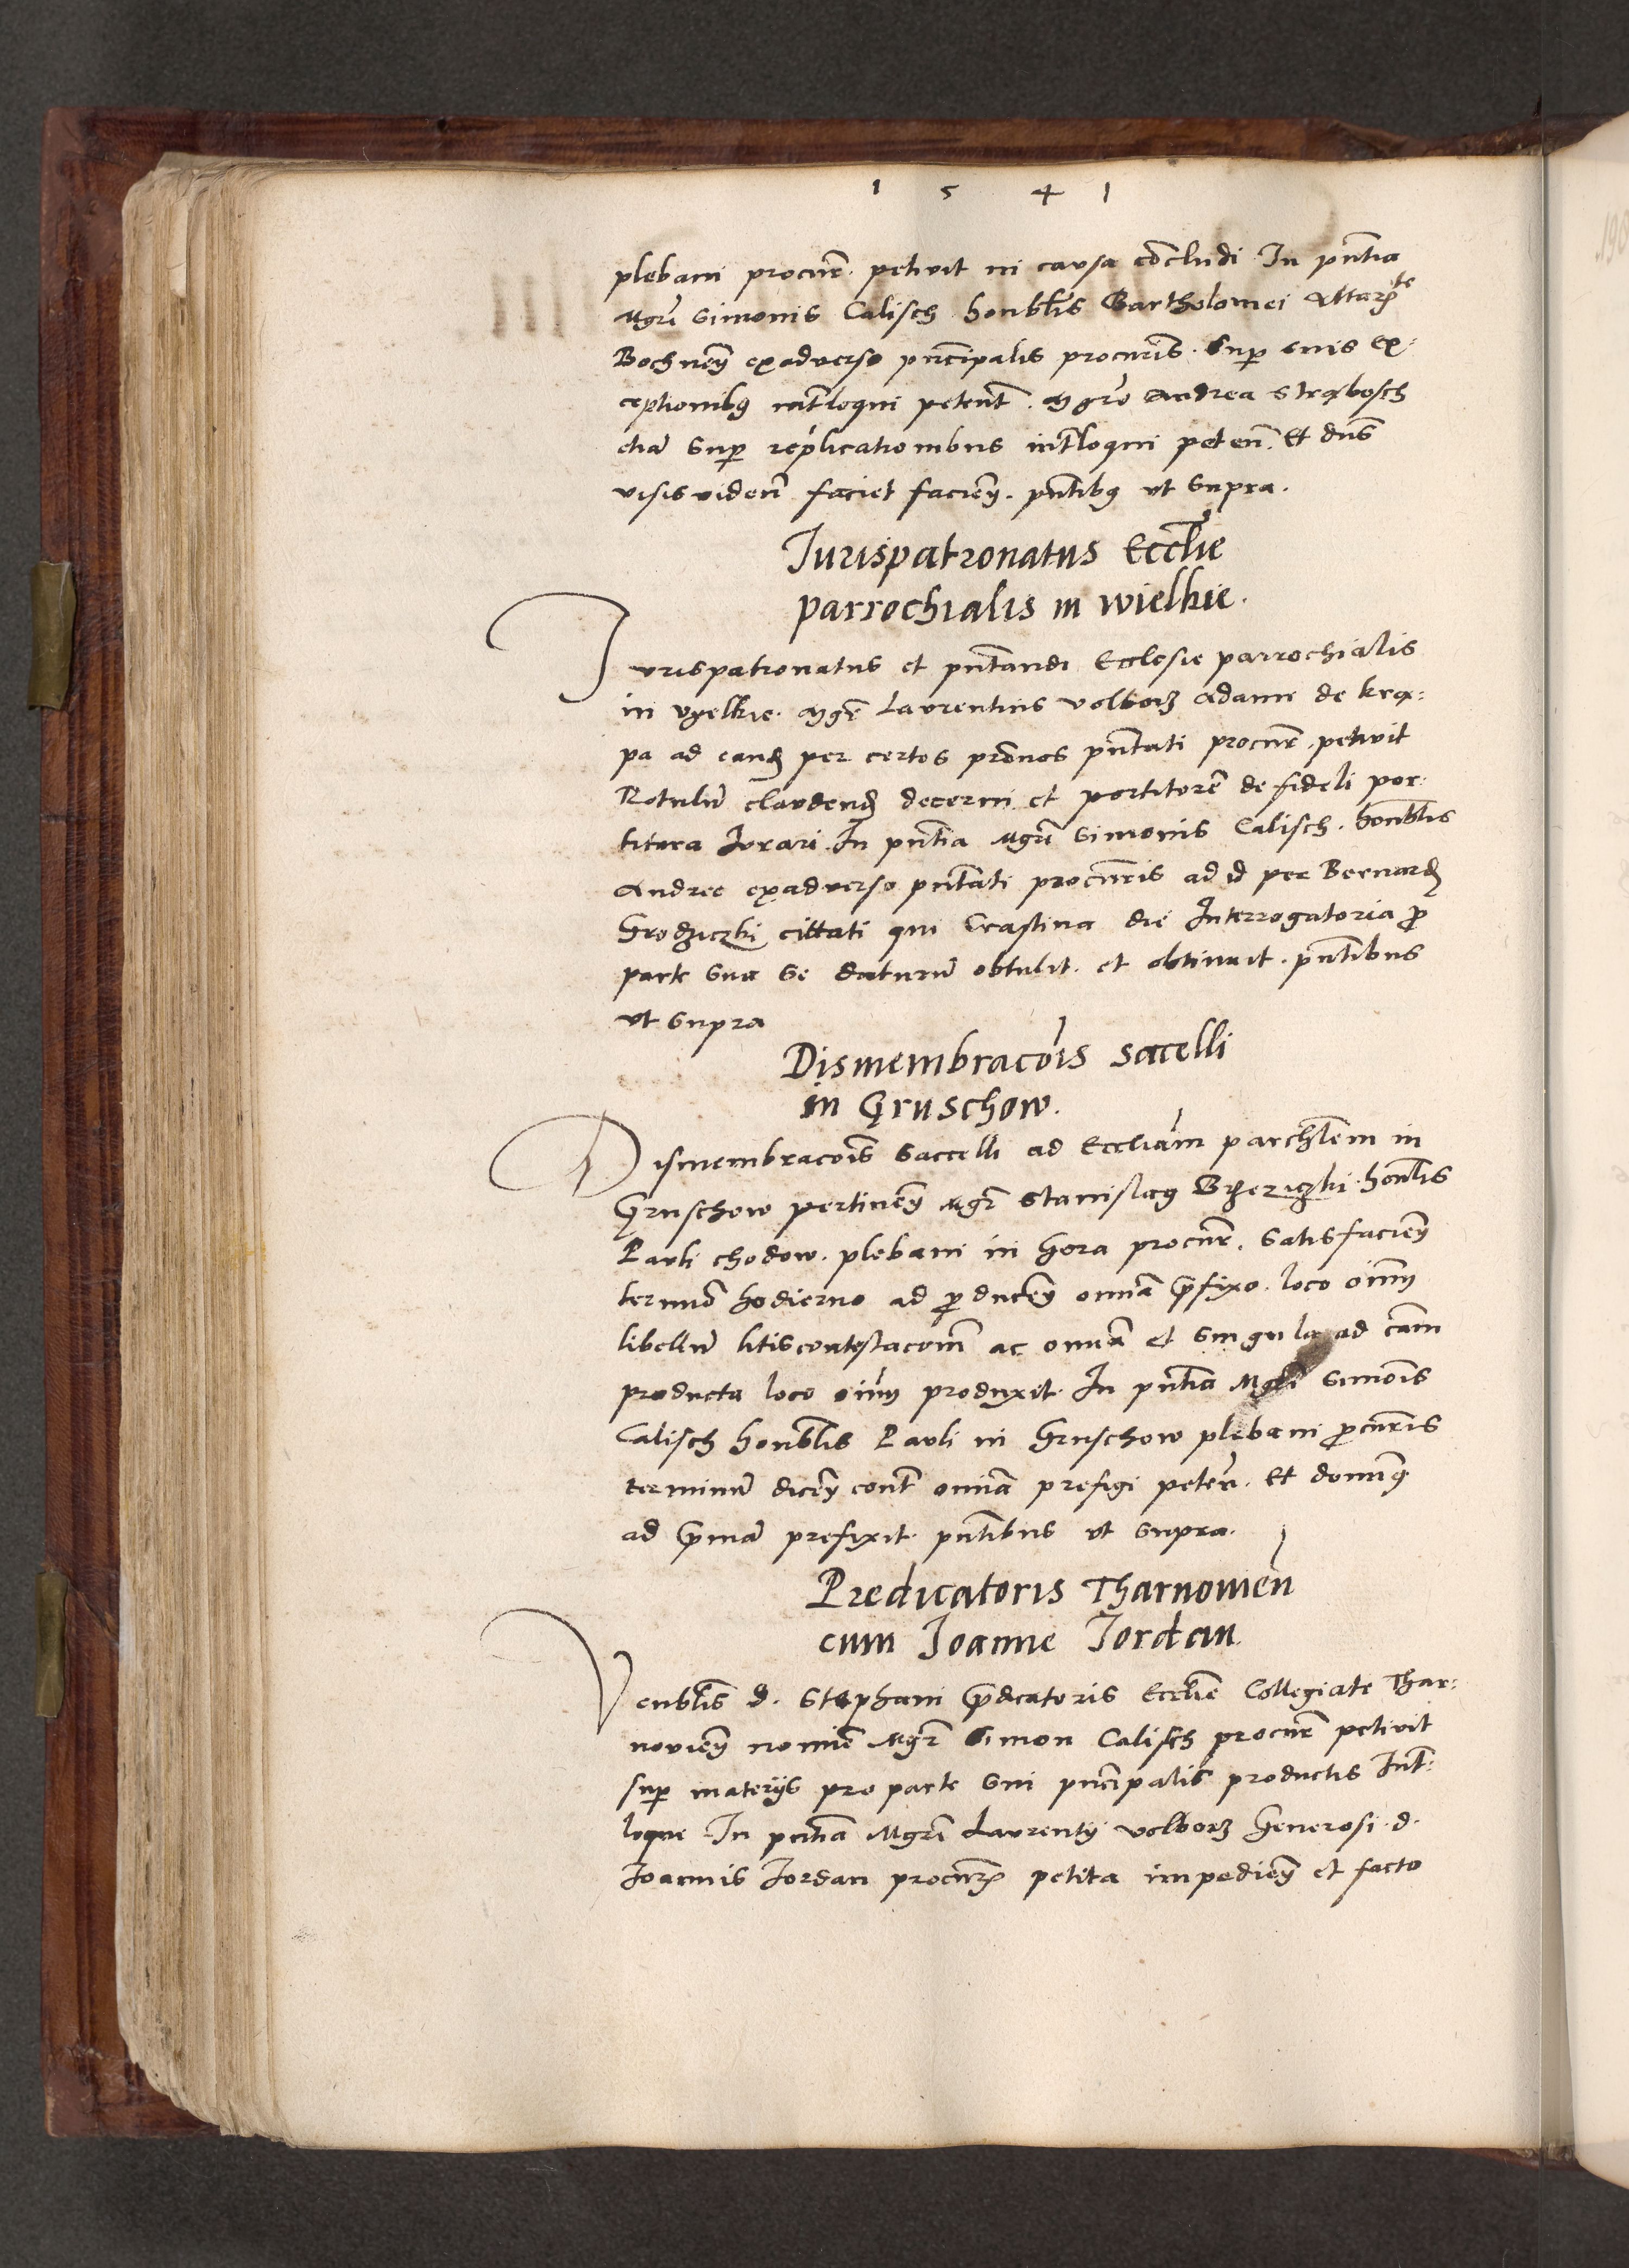 1 5 4 1
plebani procur̃. petivit in causa cõcludi In pñtia
Mgrĩ Simonis Calisch honblis Bartholomei Altarĩste
Bochneñ exadverso pñcipalis procuris. Sup suis ex-
ceptionibꝫ intloqui petent̃. Mgrõ Andrea
etiã Sup replicationibus intloqui peteñ. Et dñs
visis videñ faciet facieñ. pñtibꝫ ut Supra.
Jurispatronatus Ecclie
parrochialis in wielkie.
Jurispatronatus et pñtandi Ecclesie parrochialis
in vyelkie. Mgr̃ Laurentius Volborz Adami de Krą-
pa ad eand̃ per certos prõnos pñtati procur̃. petivit
Rotulũ claudend̃ decerni et portitorẽ de fideli por-
titura Jurari. In pñtia Mgrĩ Simonis Calisch. honblis
Andree exadverso pñtati procuris ad id per Bernard̃
Grodziczki cittati qui Crastina die Interrogatoria ꝓ
parte sua se daturũ obtulit. et obtinuit. pñtibus
ut Supra
Dismembracõis sacelli
in Gruschow.
Dismembracõis Saccelli ad Eccliam parchlem in
Gruschow pertineñ Mgr̃ Stanislaꝫ Brzeziczki. honlis
Pauli chodow. plebani in Gora procur̃. Satisfacieñ
termiõ hodierno ad ꝓduceñ omñia p̃fixo. loco oĩm
libellũ litiscontestacoñi ac omñia et singula ad cãm
producta loco oĩm produxit. In pñtia Mgrĩ Simõis
Calisch honblis Pauli in Gruschow plebani ꝓcuris
terminũ diceñ cont̃ omñia prefigi peteñ. Et dominꝫ
ad p̃mã prefixit. pñtibus ut Supra.
Predicatoris Tharnovieñ
cum Joanne Jordan.
Venblis d. Stephani p̃dicatoris Ecclie Collegiate Thar-
novieñ nomiẽ Mgr̃ Simon Calisch procur̃ petivit
sup materiis pro parte sui pñcipalis productis Int̃-
loqui In pñtia Mgrĩ Laurentij Volborz Generosi d.
Joannis Jordan procur̃ petita impedieñ et facto